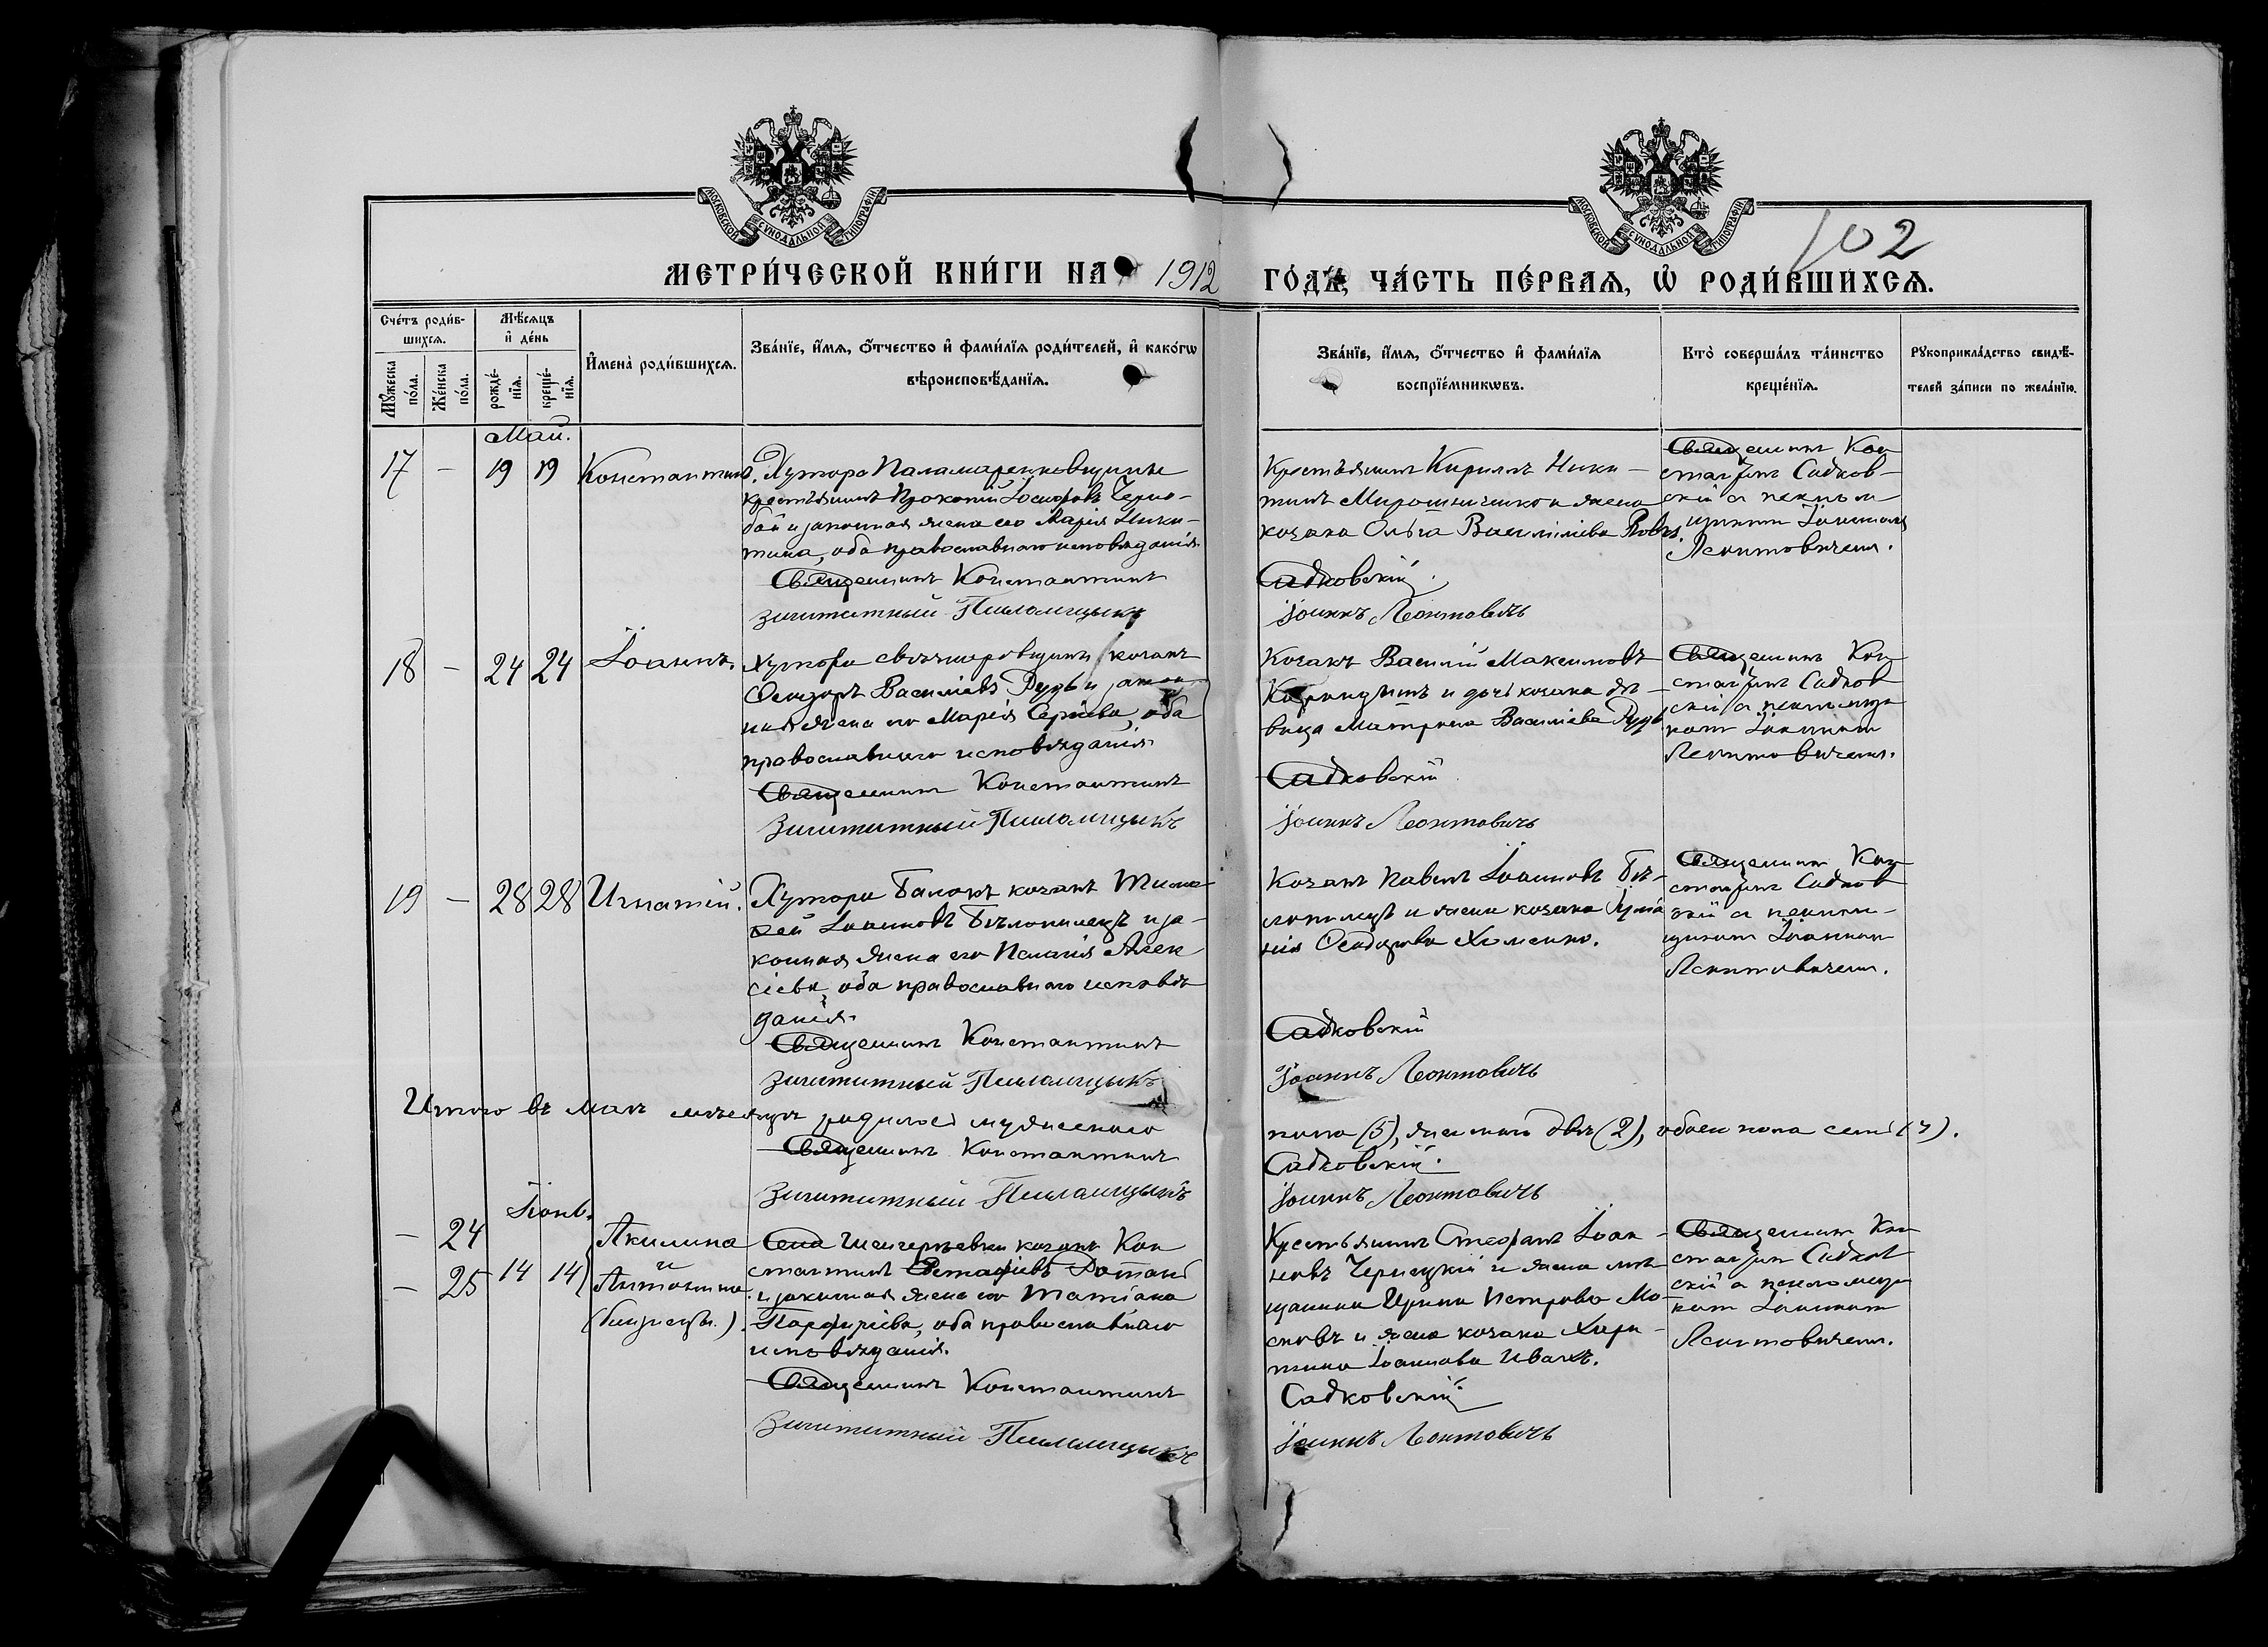 МОСКОВСКОЙ СУНОДАЛЬНОЙ ТИПОГРАФІИ
МОСКОВСКОЙ СУНОДАЛЬНОЙ ТИПОГРАФІИ
102
МЕТРИ́ЧЕСКОЙ КНИ́ГИ НА 1912 ГО́ДЪ, ЧА́СТЬ ПЕ́РВАѦ, Ѡ҆ РОДИ́ВШИХСѦ.
Сче́тъ роди́в-
шихсѧ.
Мꙋ́жеска по́ла.
Же́нска по́ла.
Мѣ́сѧцъ
и҆ де́нь
рожде́-
нїѧ.
креще́-
нїѧ.
И҆мена̀ роди́вшихсѧ.
Зва́нїе, и҆́мѧ, ѻ҆́тчество и҆ фами́лїѧ роди́телей, и҆ како́гѡ
вѣроисповѣ́данїѧ.
Зва́нїе, и҆́мѧ, ѻ҆́тчество и҆ фами́лїѧ
воспрїе́мникѡвъ.
Кто̀ соверша́лъ та́инство
креще́нїѧ.
Рꙋкоприкла́дство свидѣ́-
телей за́писи по жела́нїю.
Май.
17 – 19 19 Константинъ.
Хутора Паламаренковщины
крестьянинъ Прокопій Іосифовъ Черно-
бай и законная жена его Марія Ники-
тина, оба православнаго исповѣданія.
Священникъ Константинъ
Заштатный Псаломщикъ
Крестьянинъ Кириллъ Ники-
тинъ Мирошниченко и жена
козака Ольга Василіева
Садковскій.
Іоаннъ Леонтовичъ
Священникъ Кон-
стантинъ Садков-
скій съ псалом-
щикомъ Іоанномъ
Леонтовичемъ.
18 – 24 24 Іоаннъ.
Хутора козакъ
Ѳеодоръ Василіевъ Рудь и закон-
ная жена его Марія Сергіева, оба
православнаго исповѣданія.
Священникъ Константинъ
Заштатный Псаломщикъ
Козакъ Василій Максимовъ
и дочь козака дѣ-
вица Матрона Василіева Рудь.
Садковскій
Іоаннъ Леонтовичъ
Священникъ Кон-
стантинъ Садков-
скій съ псаломщи-
комъ Іоанномъ
Леонтовичемъ.
19 – 28 28 Игнатій.
Хутора Балокъ козакъ Тимо-
ѳей Іоанновъ Бѣлокопецъ и за-
конная жена его Пелагія Алек-
сіева, оба православнаго исповѣ-
данія.
Священникъ Константинъ
Заштатный Псаломщикъ
Козакъ Павелъ Іоанновъ Бѣ-
и жена козака
Ѳеодорова Хоменко.
Садковскій
Іоаннъ Леонтовичъ
Священникъ Кон-
стантинъ Садков-
скій съ псалом-
щикомъ Іоанномъ
Леонтовичемъ.
Итого въ маѣ мѣсяцѣ родилось мужескаго пола (5), женскаго двѣ (2), обоего пола семь (7).
Священникъ Константинъ Садковскій.
Заштатный Псаломщикъ Іоаннъ Леонтовичъ
Іюнь.
– 24 Акилина
и
– 25 14 14 Антонина.
(близнецы).
Села козакъ Кон-
стантинъ Евстафіевъ
и законная жена его Татіана
Порфиріева, оба православнаго
исповѣданія.
Священникъ Константинъ
Заштатный Псаломщикъ
Крестьянинъ Стефанъ Іоан-
новъ Чернецкій и жена мѣ-
щанина Ирина Петрова
и жена козака Хари-
тина Іоаннова
Садковскій.
Іоаннъ Леонтовичъ
Священникъ Кон-
стантинъ Садков-
скій съ псаломщи-
комъ Іоанномъ
Леонтовичемъ.